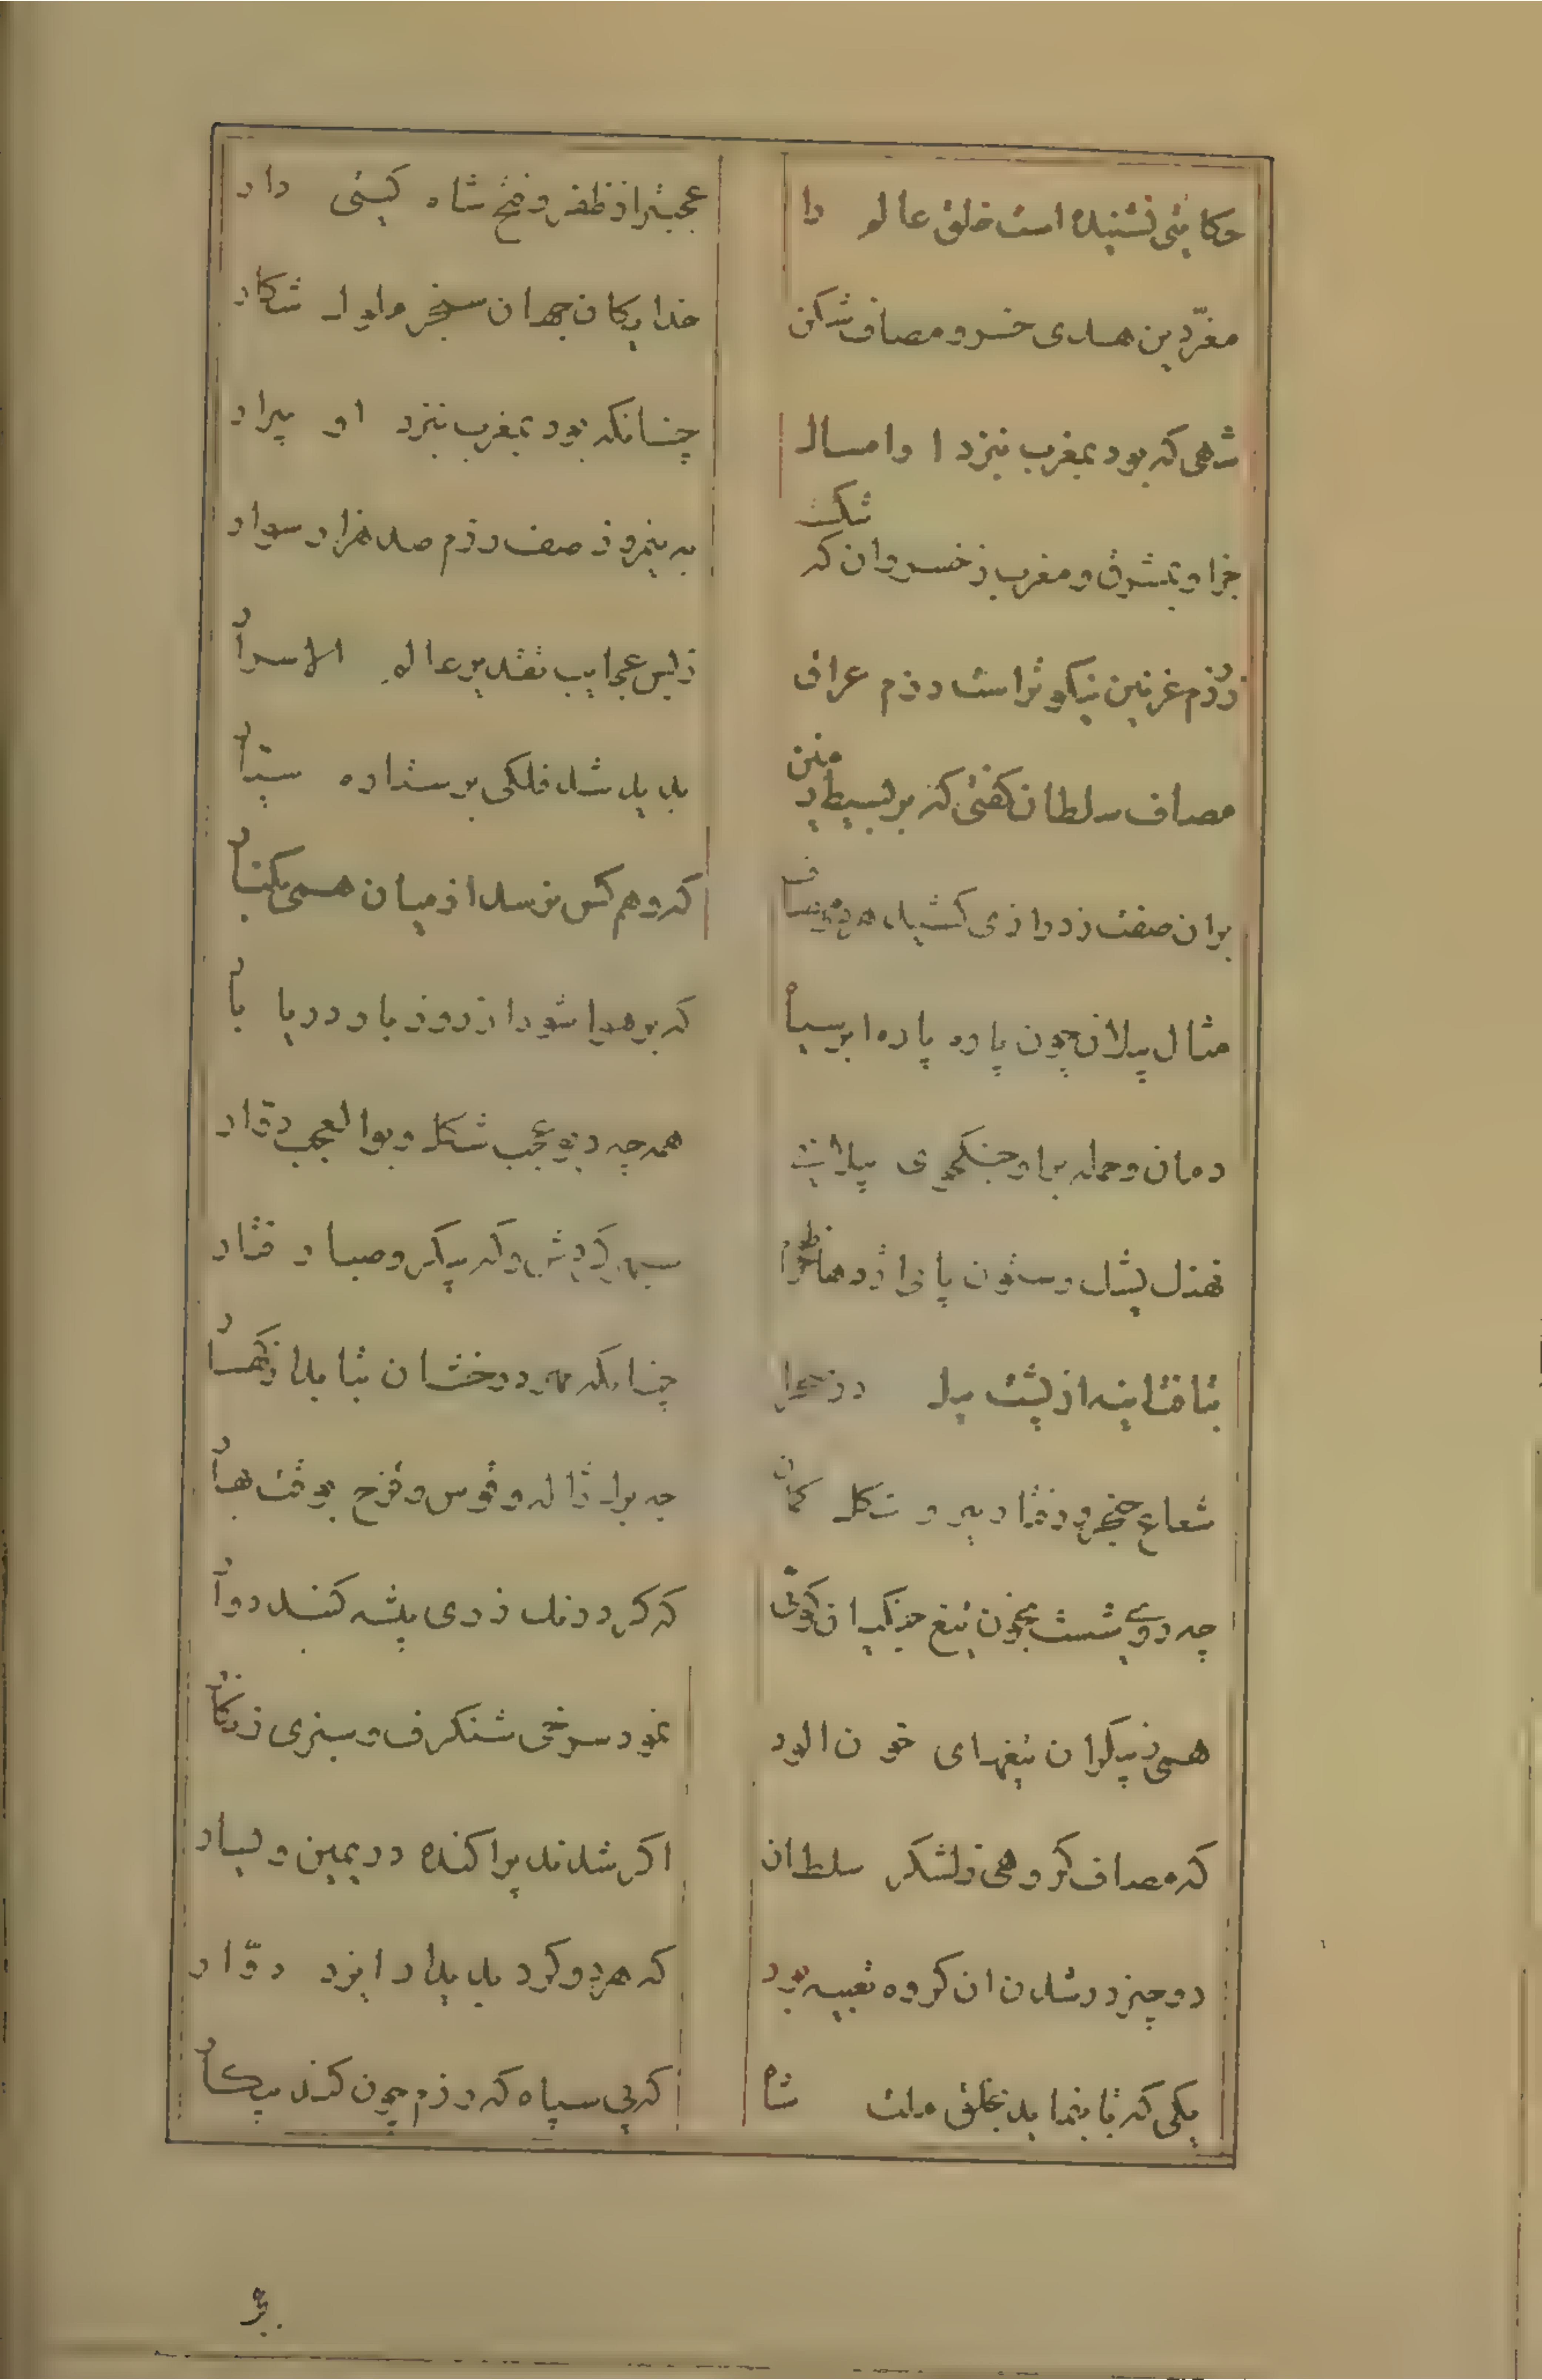 حکایتی نشنیده است خلق عالم را عجبتر از ظفر و فتح شاه کیتی دار
معزّ دین هدی خسرو مصاف شکن خدایکان جهان سنجر ملوک شکار
شهی که بود بمغرب نبرد او امسال چنانکه بود بمغرب نبرد او پیرار
جز او بمشرق و مغرب ز خسروان که شکست به نیمروز صف رزم صد هزار سوار
ز رزم غزنین نیکوتر است رزم عراق ز بس عجایب تقدیر عالم الاسرار
مصاف سلطان کفتی که بر بسیط زمین پدید شد فلکی بر ستاره سیار
بران صفت ز درازی کشیده هر دو مصاف که وهم کس نرسد از میان همی بکنار
مثال پیلان چون پاره پاره ابر سیاه که بر هوا شود از روز باد دریا بار
دمان و حمله بر و جنکجوی پیلانی همه چه دیو عجب شکل و بوالعجب دوّار
تهمتن و ستون پا و اژدها سپهر کردش و که پیکر و صبا رفتار
بتافت اینه از پشت پیل در صحرا چنانکه مهر درخشان بتابد از کهسار
شعاع خنجر و رفتار تیر و شکل کمان چه برق و ژاله و قوس و قزح بوقت بهار
چه روی شست بخون تیغ جنکیان کوئی که کرد رنک رزی پیشه کنبد دوار
همی ز پیکر ان تیغهای خون الود نمود سرخی شنکرف و سبزی زنکار
که مصاف کروهی ز لشکر سلطان اکر شدند پراکنده در یمین و یسار
دو چیز در شدن ان کروه تعبیه بود که هر دو کرد پدیدار ایزد دوّار
یکی که تا بنماید بخلق ملت شاه که بی سپاه که رزم چون کند پیکار